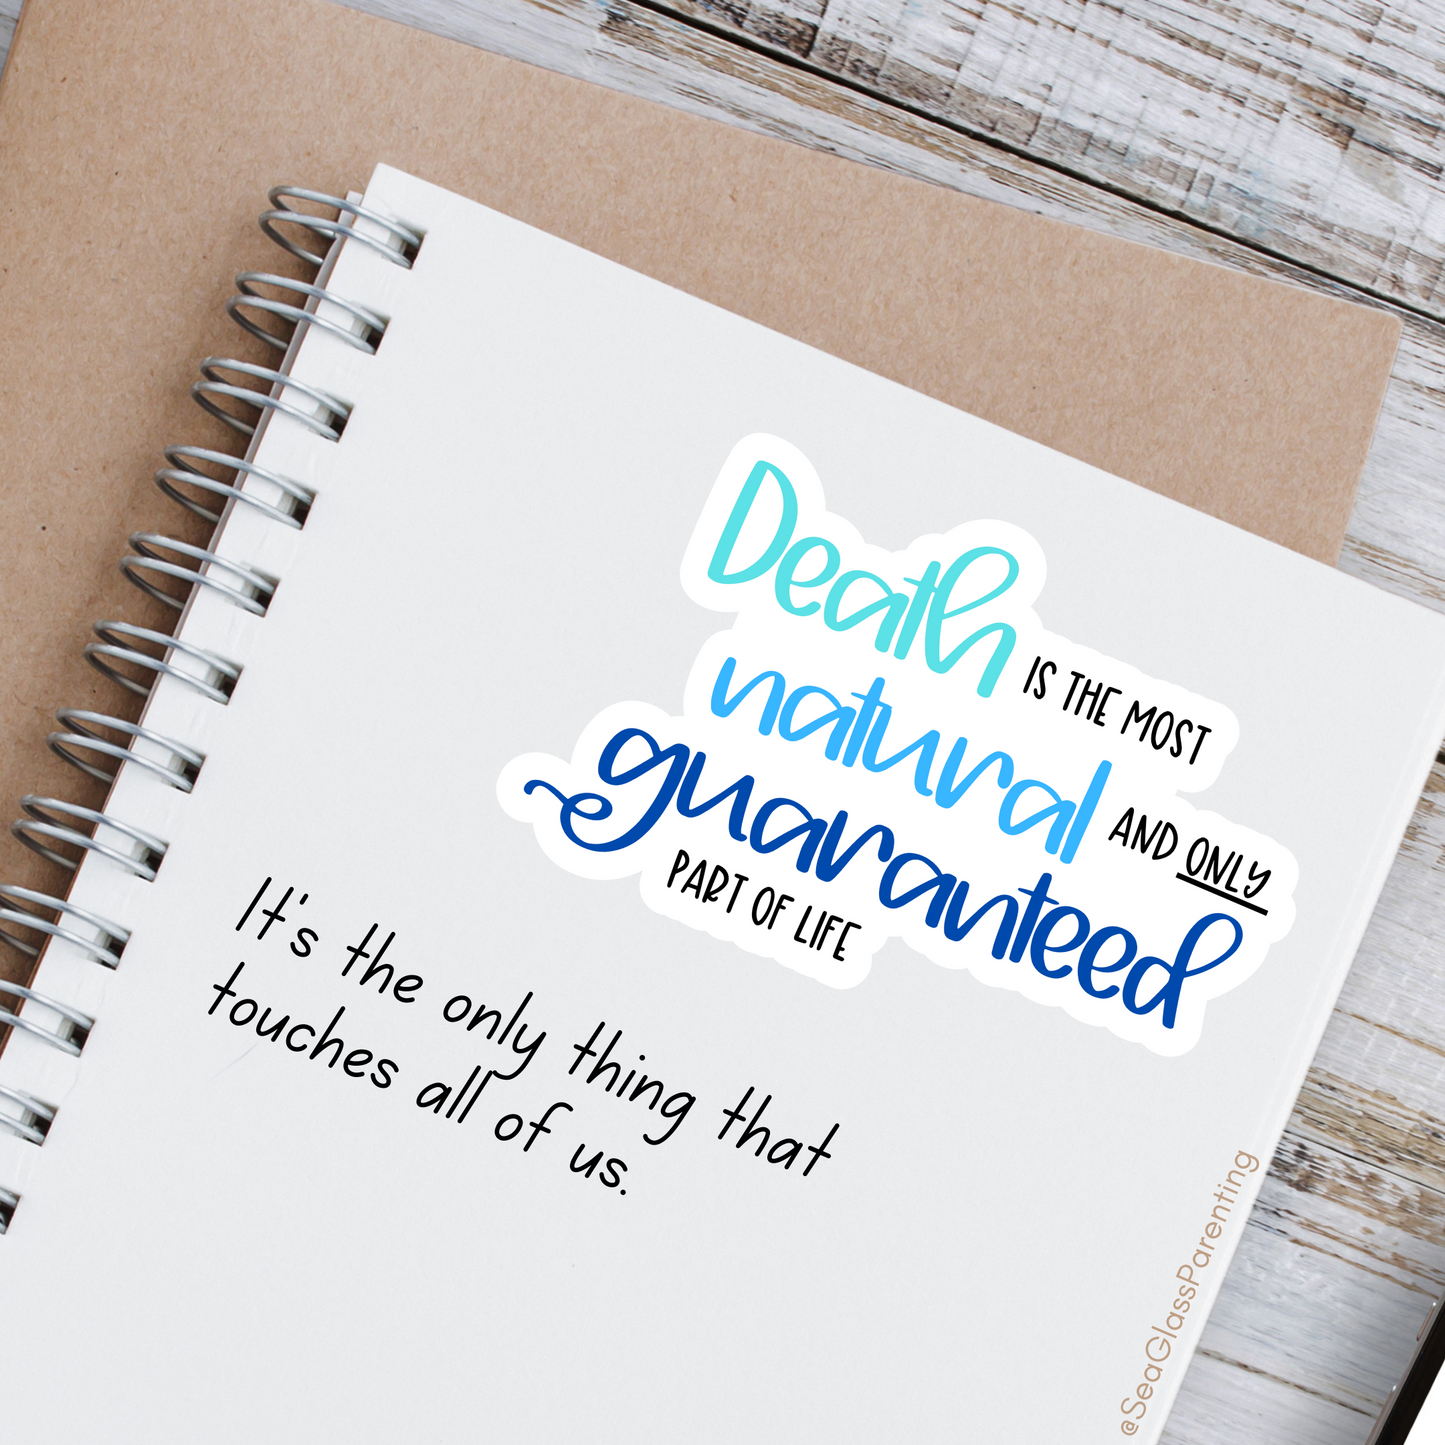 Death IS THE MOST
natural AND ONLY
guaranteed
PART OF LIFE
It's the only thing that
touches all of us.
@SeaGlassParenting